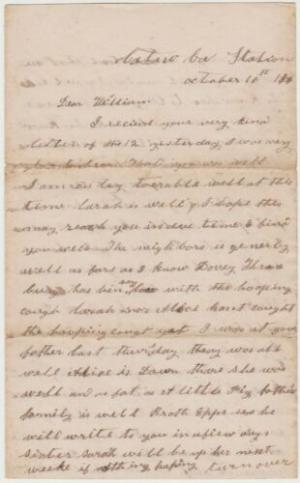 Co Station
October 16th 186
Dear William
I recieved your very kind
letter of the 12 yesterday I was very
glad to hear that you was well
I am now day tolerable well at this
time Sarah is well & I hope this
may reach you in due time & find
you well The neighbors is generly
well as fare as I know Dovey
has bin with the hooping
cough hasnt caught
the hooping cough yet I was at your
father last thursday thay was all
well Alice is Down there she was
well and as fat as a little Pig
family is well Broth Epps ses he
will write to you in a few days
sister Sarah will be up her next
weeke if nothing hapins turn over